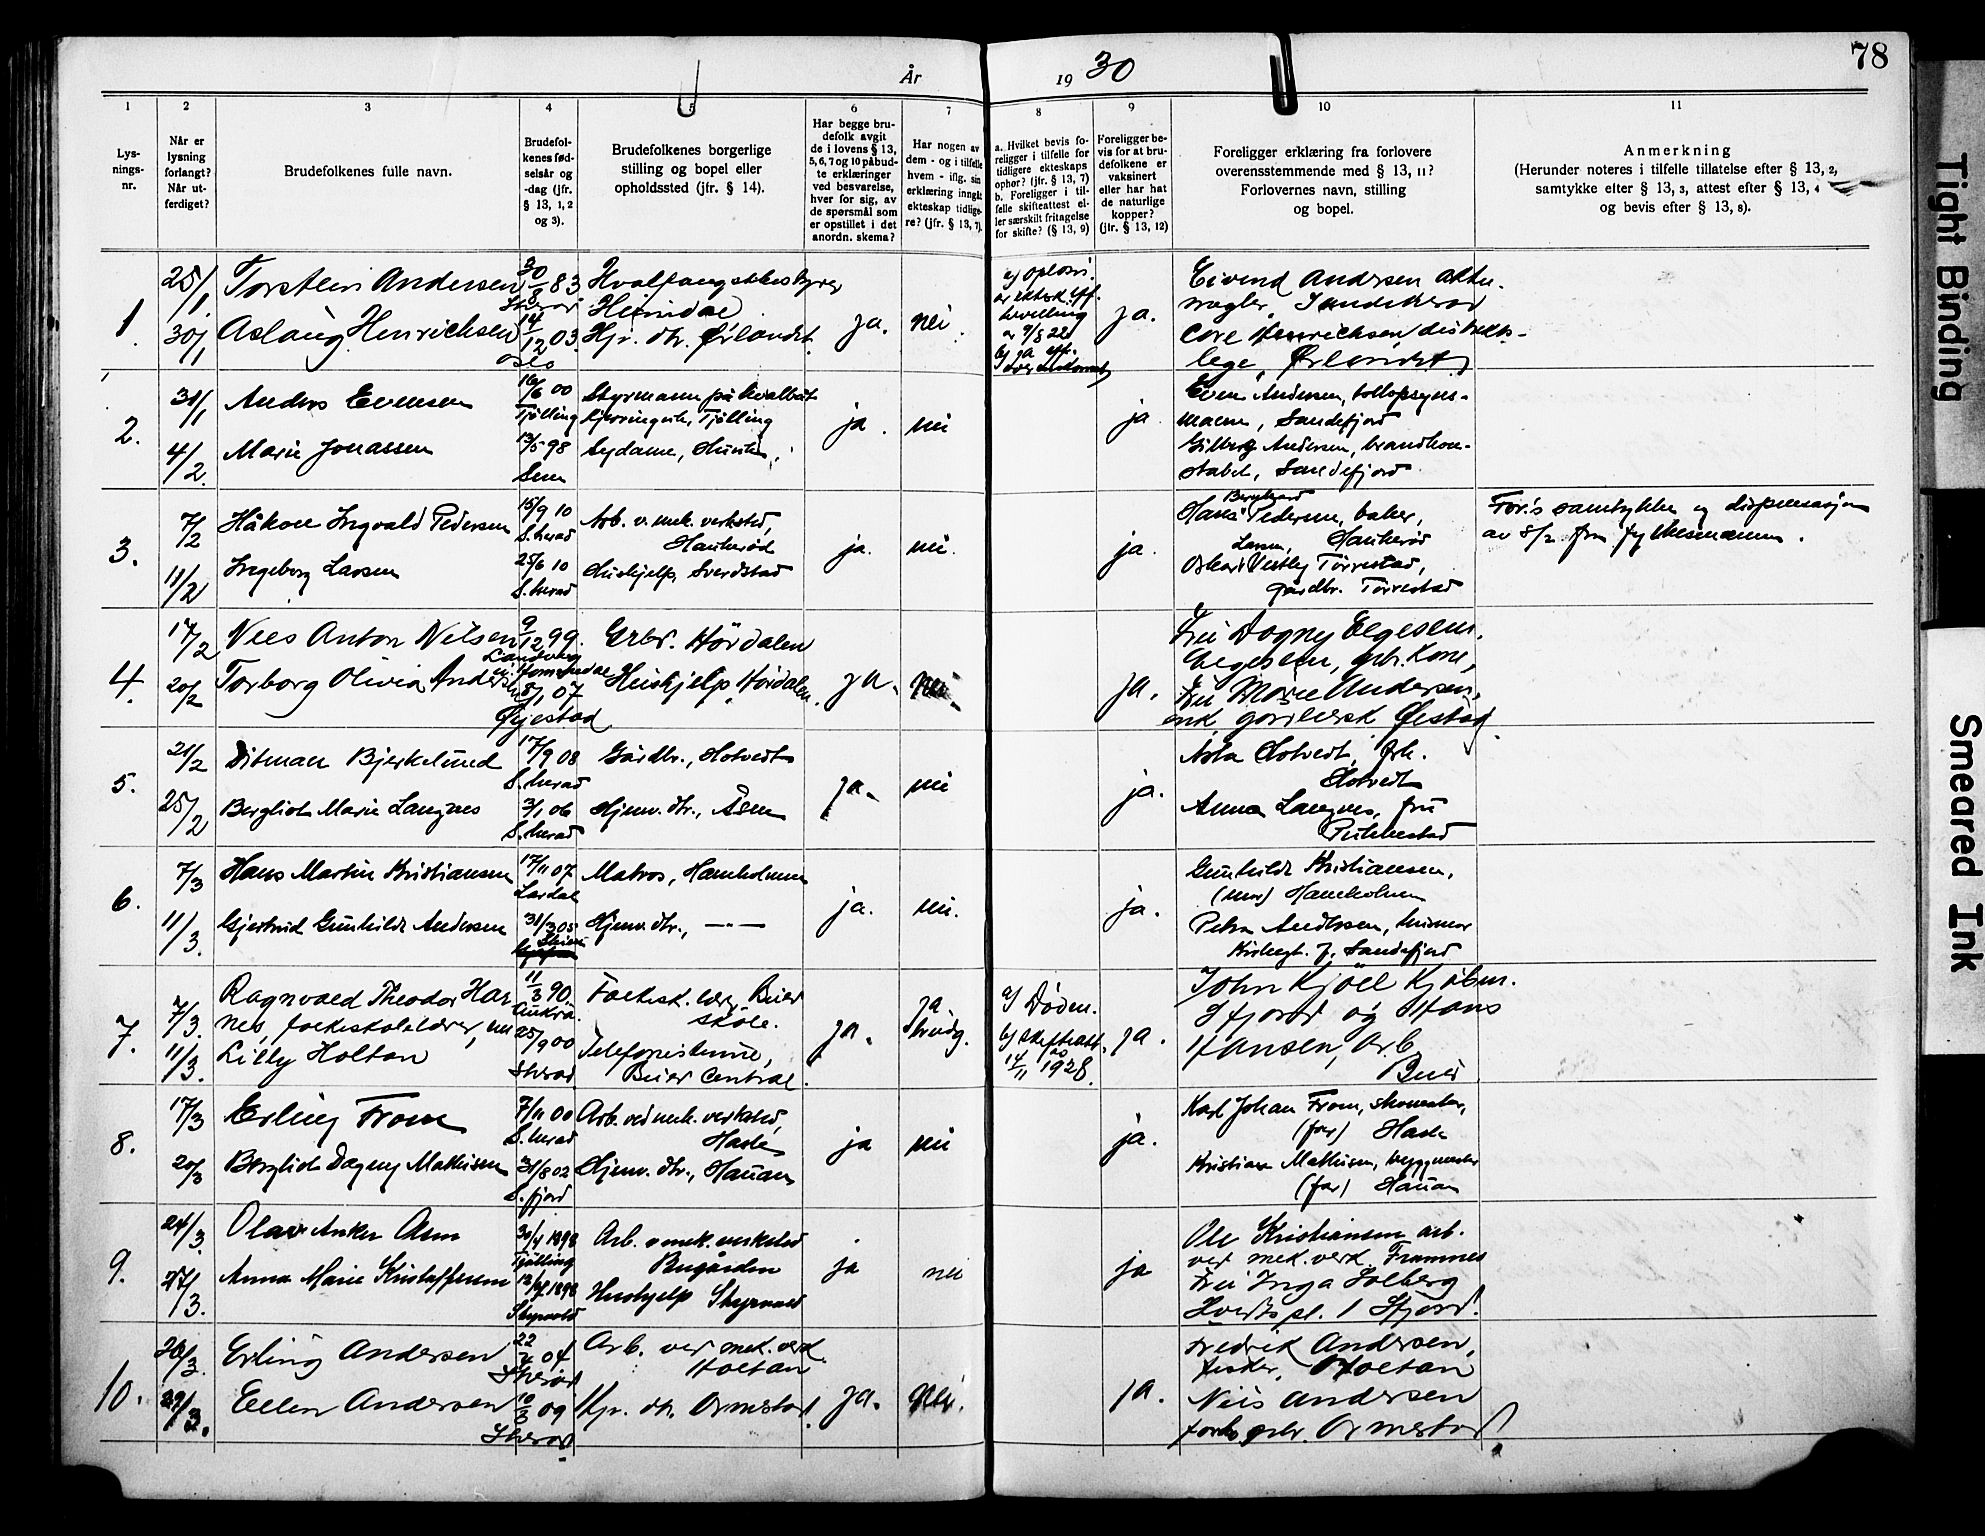 78
År 1930
1 2 3 4 5 6 7 8 9 10 11
Lysningsnr.
Når er lysning forlangt? Når utferdiget?
Brudefolkenes fulle navn.
Brudefolkenes fødselsår og -dag (jfr. § 13, 1, 2 og 3).
Brudefolkenes borgerlige stilling og bopel eller opholdssted (jfr. § 14).
Har begge brudefolk avgit de i lovens § 13, 5, 6, 7 og 10 påbudte erklæringer ved besvarelse, hver for sig, av de spørsmål som er opstillet i det anordn. skema?
Har nogen av dem - og i tilfelle hvem - iflg. sin erklæring inngått ekteskap tidligere? (jfr. § 13, 7).
a. Hvilket bevis foreligger i tilfelle for tidligere ekteskaps ophør? (jfr. § 13, 7)
b. Foreligger i tilfelle skifteattest eller særskilt fritagelse for skifte? (§ 13, 9)
Foreligger bevis for at brudefolkene er vaksinert eller har hat de naturlige kopper? (jfr. § 13, 12)
Foreligger erklæring fra forlovere overensstemmende med § 13, 11? Forlovernes navn, stilling og bopel.
Anmerkning
(Herunder noteres i tilfelle tillatelse efter § 13, 2, samtykke efter § 13, 3, attest efter § 13, 4 og bevis efter § 13, 8).
1 25/1 Torstein Andersen 30/8 83 Hvalfangstbestyrer Heimdal
30/1 Aslaug Henrichsen 14/12 03 Oslo Hjv. dtr. Ørlandet ja. nei. ja.
Eivend Andersen
lege, Ørlandet
2. 31/1 Anders Evensen 16/6 00 Tjølling Styrmann på hvalbåt Tjølling
4/2 Marie Jonassen 13/5 98 Sem Sydame ja. nei ja
Even Andersen, tollopsynsmann, Sandefjord
Andersen, brandkonstabel, Sandefjord
3. 7/2 Håkon Ingvald Pedersen 15/9 10 S.herad Arb. v. mek. verksted, Haukerød
11/2 Ingeborg Larsen 25/6 10 S.herad Hushjelp, Sverdstad ja. nei. ja.
Hans Pedersen, baker, Haukerød
Oskar Vestby Larsen, Tørrestad, gårdbr. Tørrestad
For's samtykke og dispensasjon av 8/2 fra fylkesmannen.
4. 17/2 Niels Anton Nilsen 9/12 99. Landvig Grbr. Hørdalen
20/2 Torborg Olivia Andersen 8/1 07 Øyestad Hushjelp Hørdalen. ja. nei. ja.
Fru Dagny Elgesem.
Elgesem, gbr. kone,
Fru Marie Andersen.
Øiestad.
5. 21/2 Ditman Bjerkelund 17/9 08 S.herad Gårdbr., Hotvedt
25/2 Bergliot Marie Langnes 3/1 06 S.herad Hjemv. dtr., Åsen ja. nei ja.
Asta Hotvedt, frk. Hotvedt
Anna Langnes, fru Pukkestad
6. 7/3 Hans Martin Kristiansen 17/11 07 Lardal Matros, Hauheolmen
11/3. Gjertrud Gunhilde Andersen 31/3 05 Skien Hjemv. dtr., —"— ja. nei. ja.
Gunhilde Kristiansen, (mor)
Petra Andersen, husmor
Kirkegt. 7, Sandefjord
7. 7/3. Ragnvald Theodor Harnes, folkeskolelærer, 11/3 90. Aukra Folkesk. lær, Buer skole.
11/3. Lilly Holtan 25/9 00 Sherad Telefonistinne, Buer Central. ja. ja Brudg.
a/ Døden. b/ skifteatt. av 14/11 1928. ja.
John Kjøll
Sfjord og Hans Hansen, arb. Buer
8. 17/3 Erling From 7/11 00 S.herad Arb. ved mek. verksted, Hasle
20/3 Bergliot Dagny Mathisen 31/8 02 S.fjord Hjemv. dtr., Hauan ja nei ja.
Karl Johan From, skomaker, (far) Hasle
Kristian Mathisen, byggmester (far) Hauan
9. 24/3. Olav Anker Asen 30/4 1898 Tjølling Arb. v mek. verksted Bugården
27/3. Anna Marie Kristoffersen 1898 Hushjelp ja nei ja
Ole Kristiansen arb. ved mek. verk. Framnes
Fru Inga Solberg
pl. 1 Sfjord.
10. 26/3. Erling Andersen 22/4 04 Sherad Arb. ved mek. verk. Holtan
29/3. Ellen Andersen 10/3 09 Sherad. Hjv. dtr. Ormestad ja. nei. ja.
Fredrik Andersen, fisker, Holtan
Nils Andersen gbr. Ormestad
Tight Binding
Smeared Ink